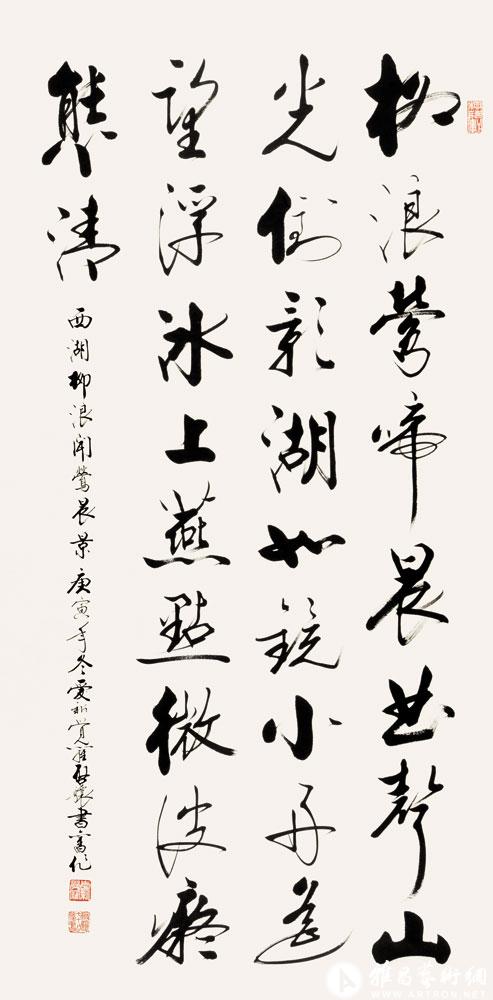 柳浪鶯啼晨曲聲山
光倒影湖如鏡小舟遥
望浮冰上燕點微波凝
態清
西湖柳浪聞鶯晨景庚寅年冬愛新覺羅啟驤書舊作
雅昌藝術網
WWW.ARTRON.NET